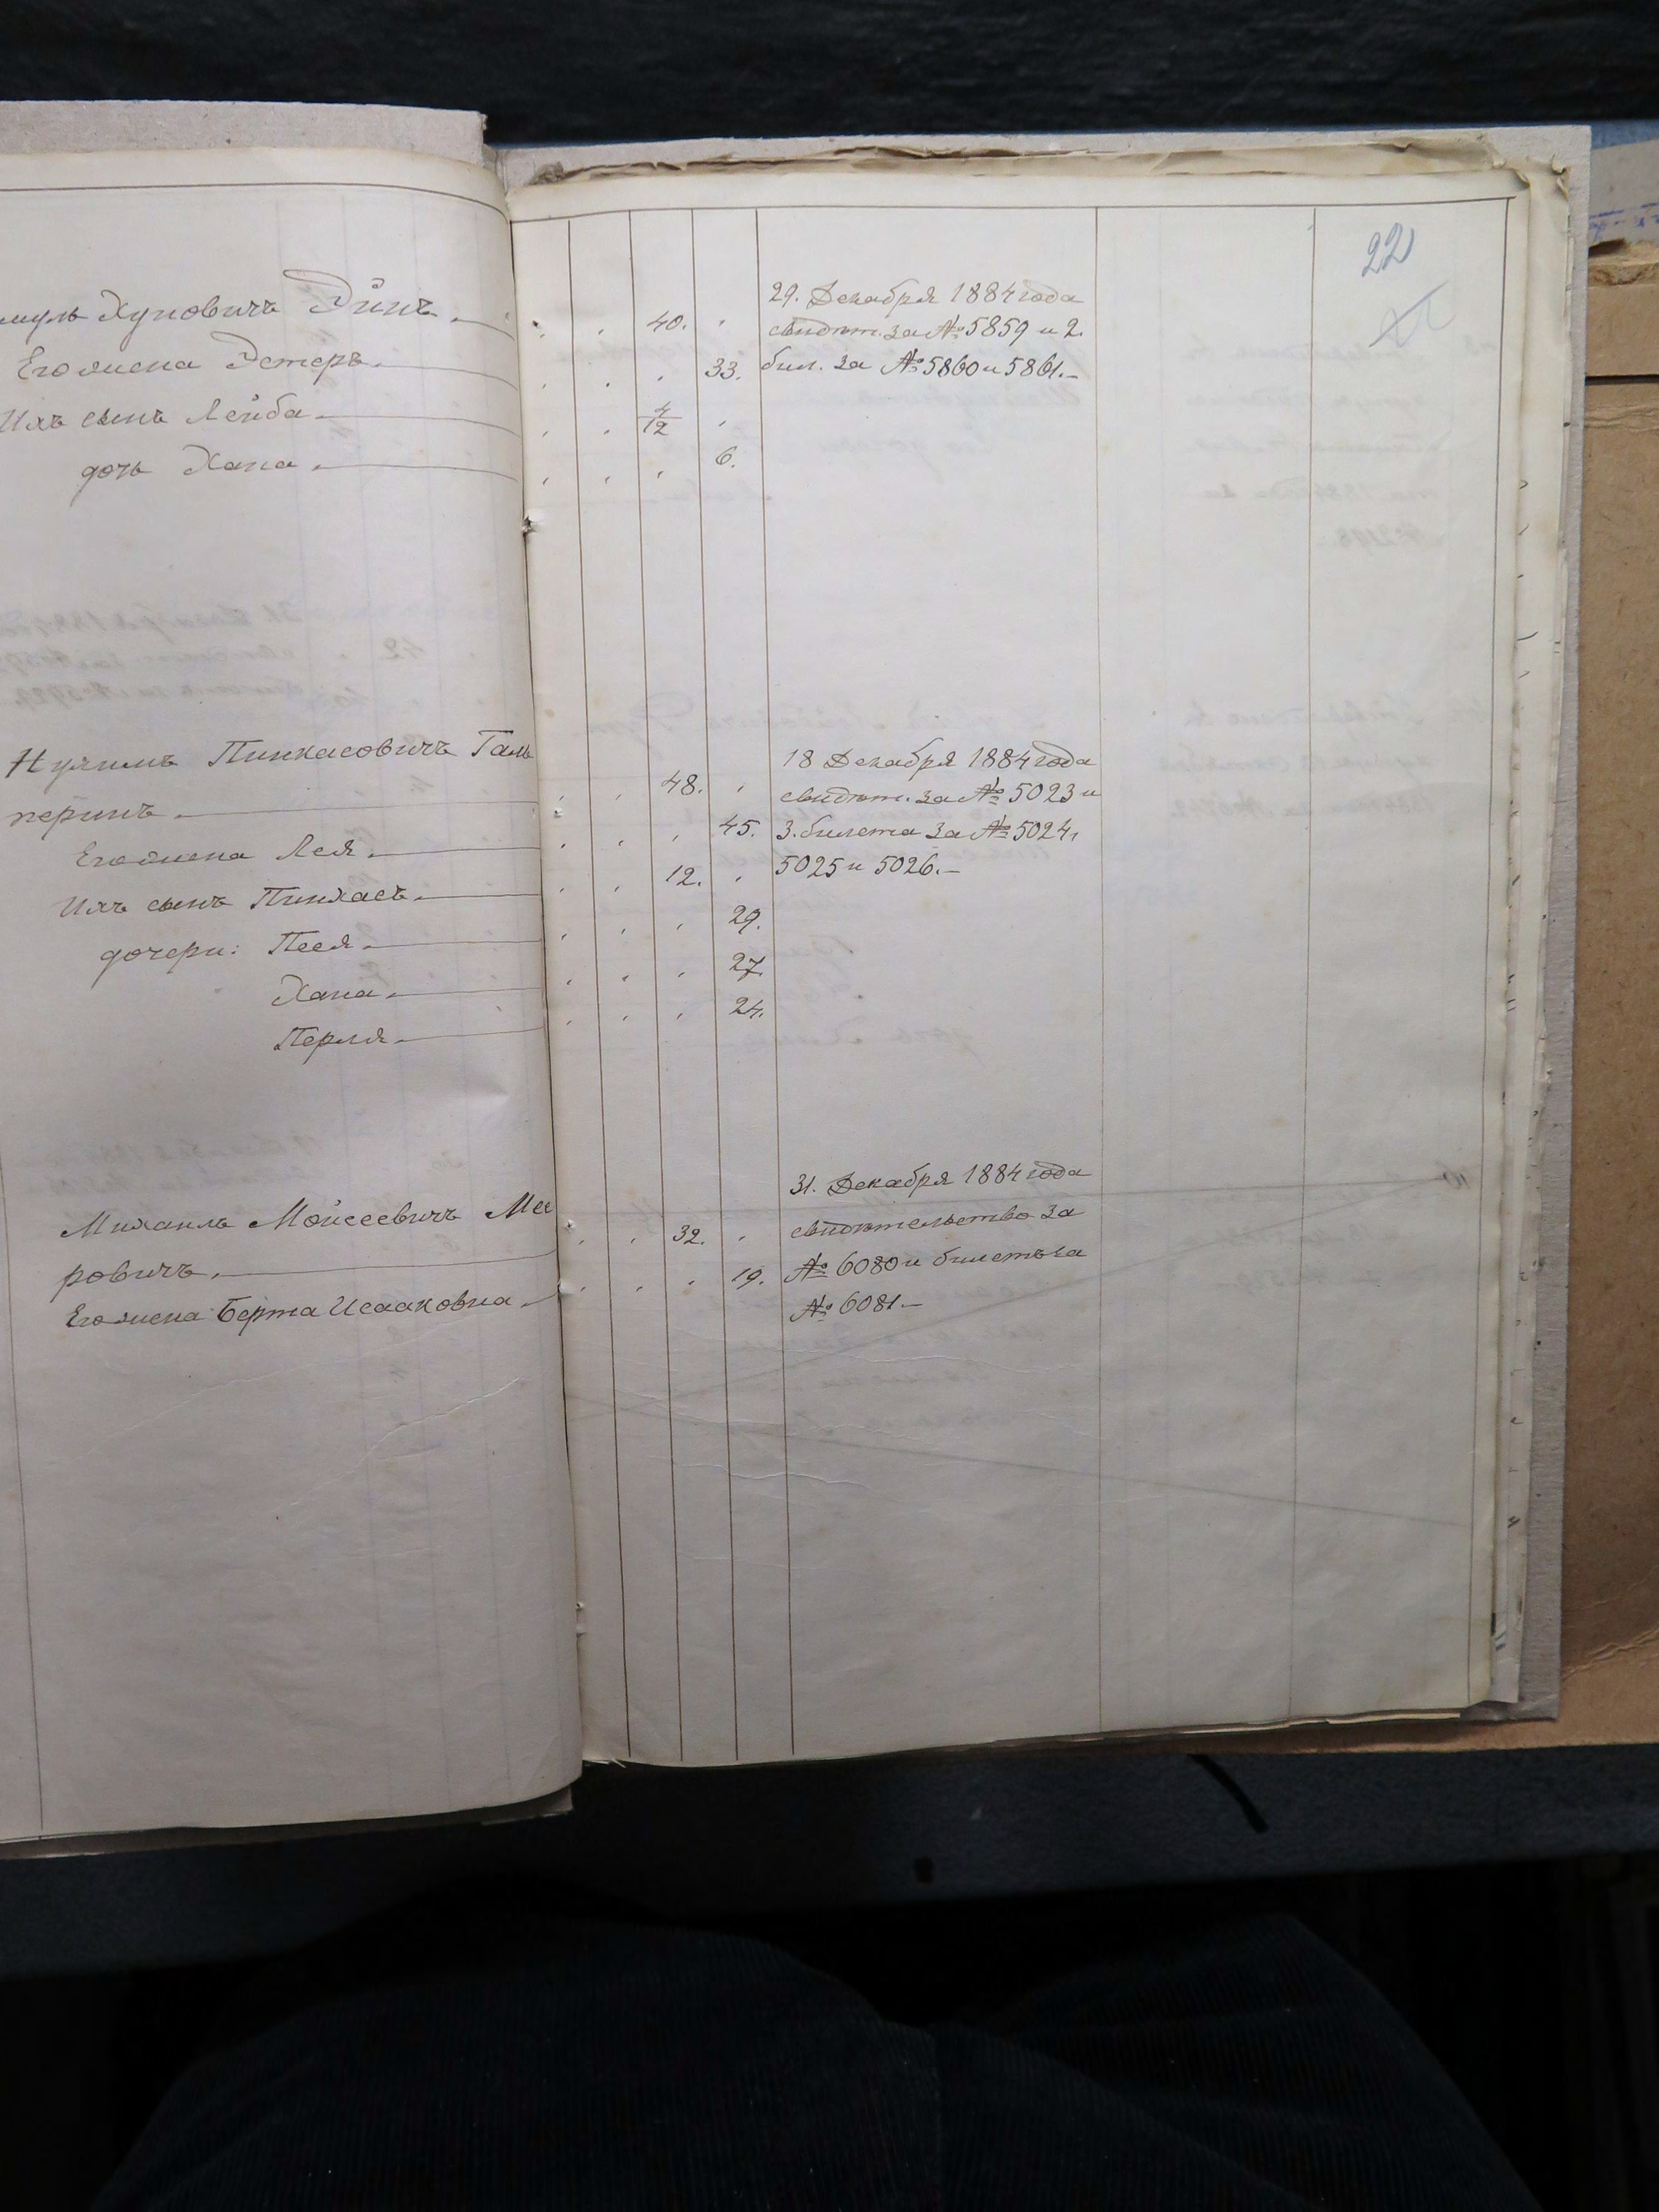 22
муль Хуновичъ Эйнъ.
Его жена Эстеръ.
Ихъ сынъ Лейба.
дочь Хана.
40.
33.
4/12
6.
29. Декабря 1884 года
свидѣт. за № 5859 и 2.
бил. за № 5860 и 5861.—
Нухимъ Пинхасовичъ Галь
перинъ.
Его жена Лея.
Ихъ сынъ Пинхасъ.
дочери: Песя.
Хана.
Перля.
48.
45.
12.
29.
27.
24.
18 Декабря 1884 года
свидѣт. за № 5023 и
3. билета за № 5024,
5025 и 5026.—
Михаилъ Мойсеевичъ Мее
ровичъ.
Его жена Берта Исааковна.
32.
19.
31. Декабря 1884 года
свидѣтельство за
№ 6080 и билетъ за
№ 6081.—